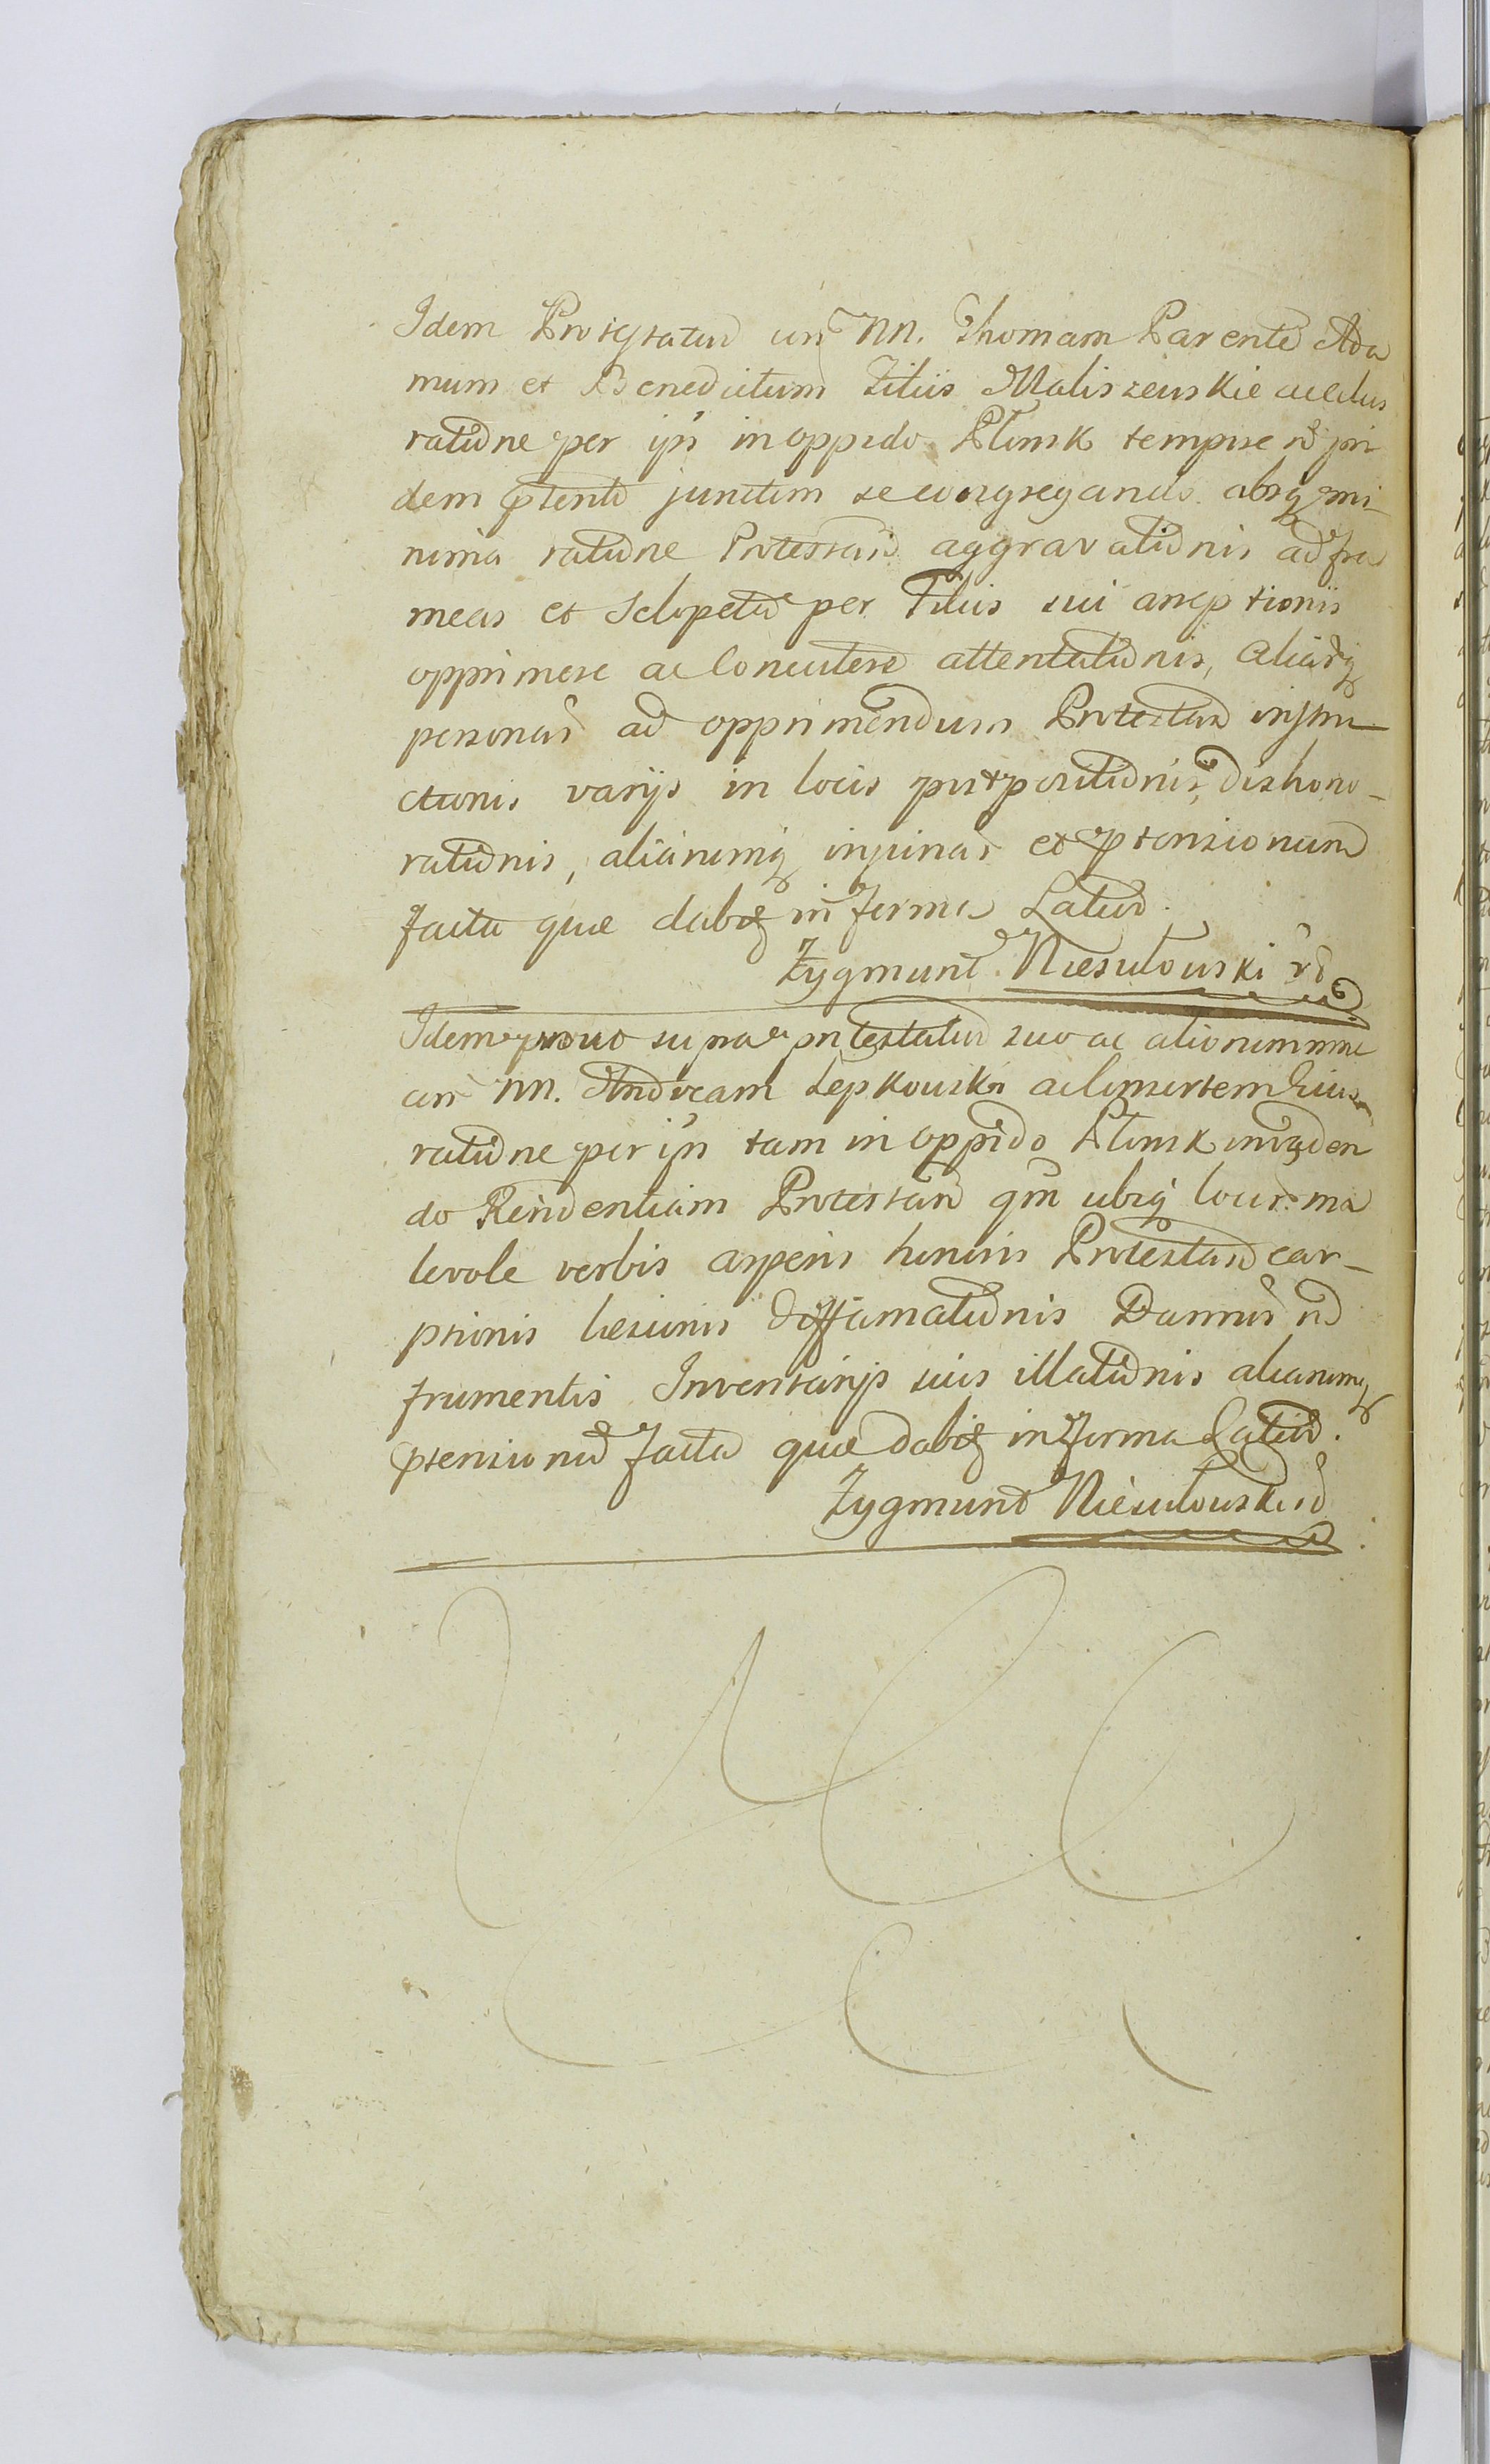 Idem Protestatur con NN. Thomam Parente Ada
mum et Benedictum Filiis Maliszewskie
ratione per ips in oppido Płonsk tempore
dem ptenti junctim se congregando absq mi-
nima ratione Protestan aggravationis ad fra
meas et Sclopeta per Filiis sui arreptionis
opprimere ac Concutere attentationis, aliarq
personas ad opprimendum Protestan instru
ctionis varijs in locis dishono-
rationis, aliarumq injurias et ptensionum
facta quæ dabit in forma Latius.
Zygmunt Niesułowski
Idem prout supra protestatur suo ac aliorum nne
con NN. Andream Lepkowski ac Consortem Eius
ratione per ips tam in oppido Płonsk invaden
do Residentiam Protestan qm ubiq locor ma
levole verbis asperis honoris Protestan car-
ptionis læsionis diffamationis Damnor
frumentis Inventarijs suis illationis aliarumq
ptensionu facta quæ dabit in forma Latius.
Zygmunt Niesułowski